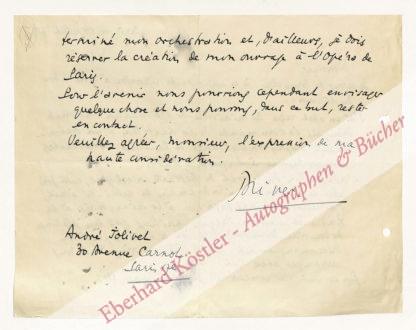 terminé mon orchestration et, d'ailleurs, je dois
réserver la création de mon ouvrage à l'Opéra de
Paris.
Pour l'avenir nous pourrions cependant envisager
quelque chose et nous pouvons, dans ce but, rester
en contact.
Veuillez agréer, Monsieur, l'expression de ma
haute considération.
André Jolivet
30 Avenue Carnot
Paris
Eberhard Köstler - Autographen & Bücher